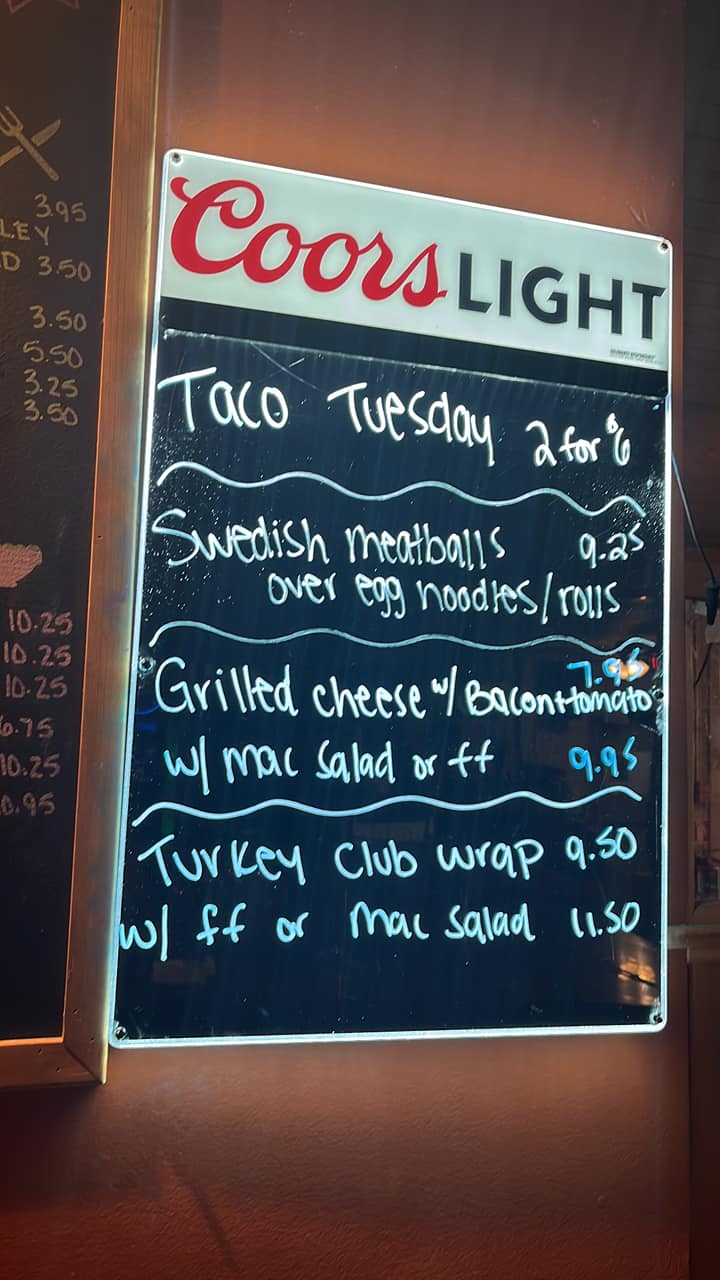 3.95
LEY
D 3.50
3.50
5.50
3.25
3.50
10.25
10.25
10.25
6.75
10.25
0.95
Coors LIGHT
Taco Tuesday 2 for $6
Swedish meatballs 9.25
over egg noodles/rolls
7.95
Grilled cheese w/ Bacon+tomato
w/ mac salad or ff 9.95
Turkey club wrap 9.50
w/ ff or mac salad 11.50